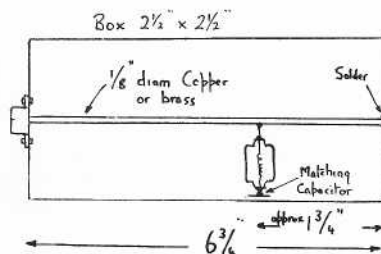 Box 2½" x 2½"
⅛" diam Copper
or brass
Solder
Matching
Capacitor
approx 1¾"
6¾"